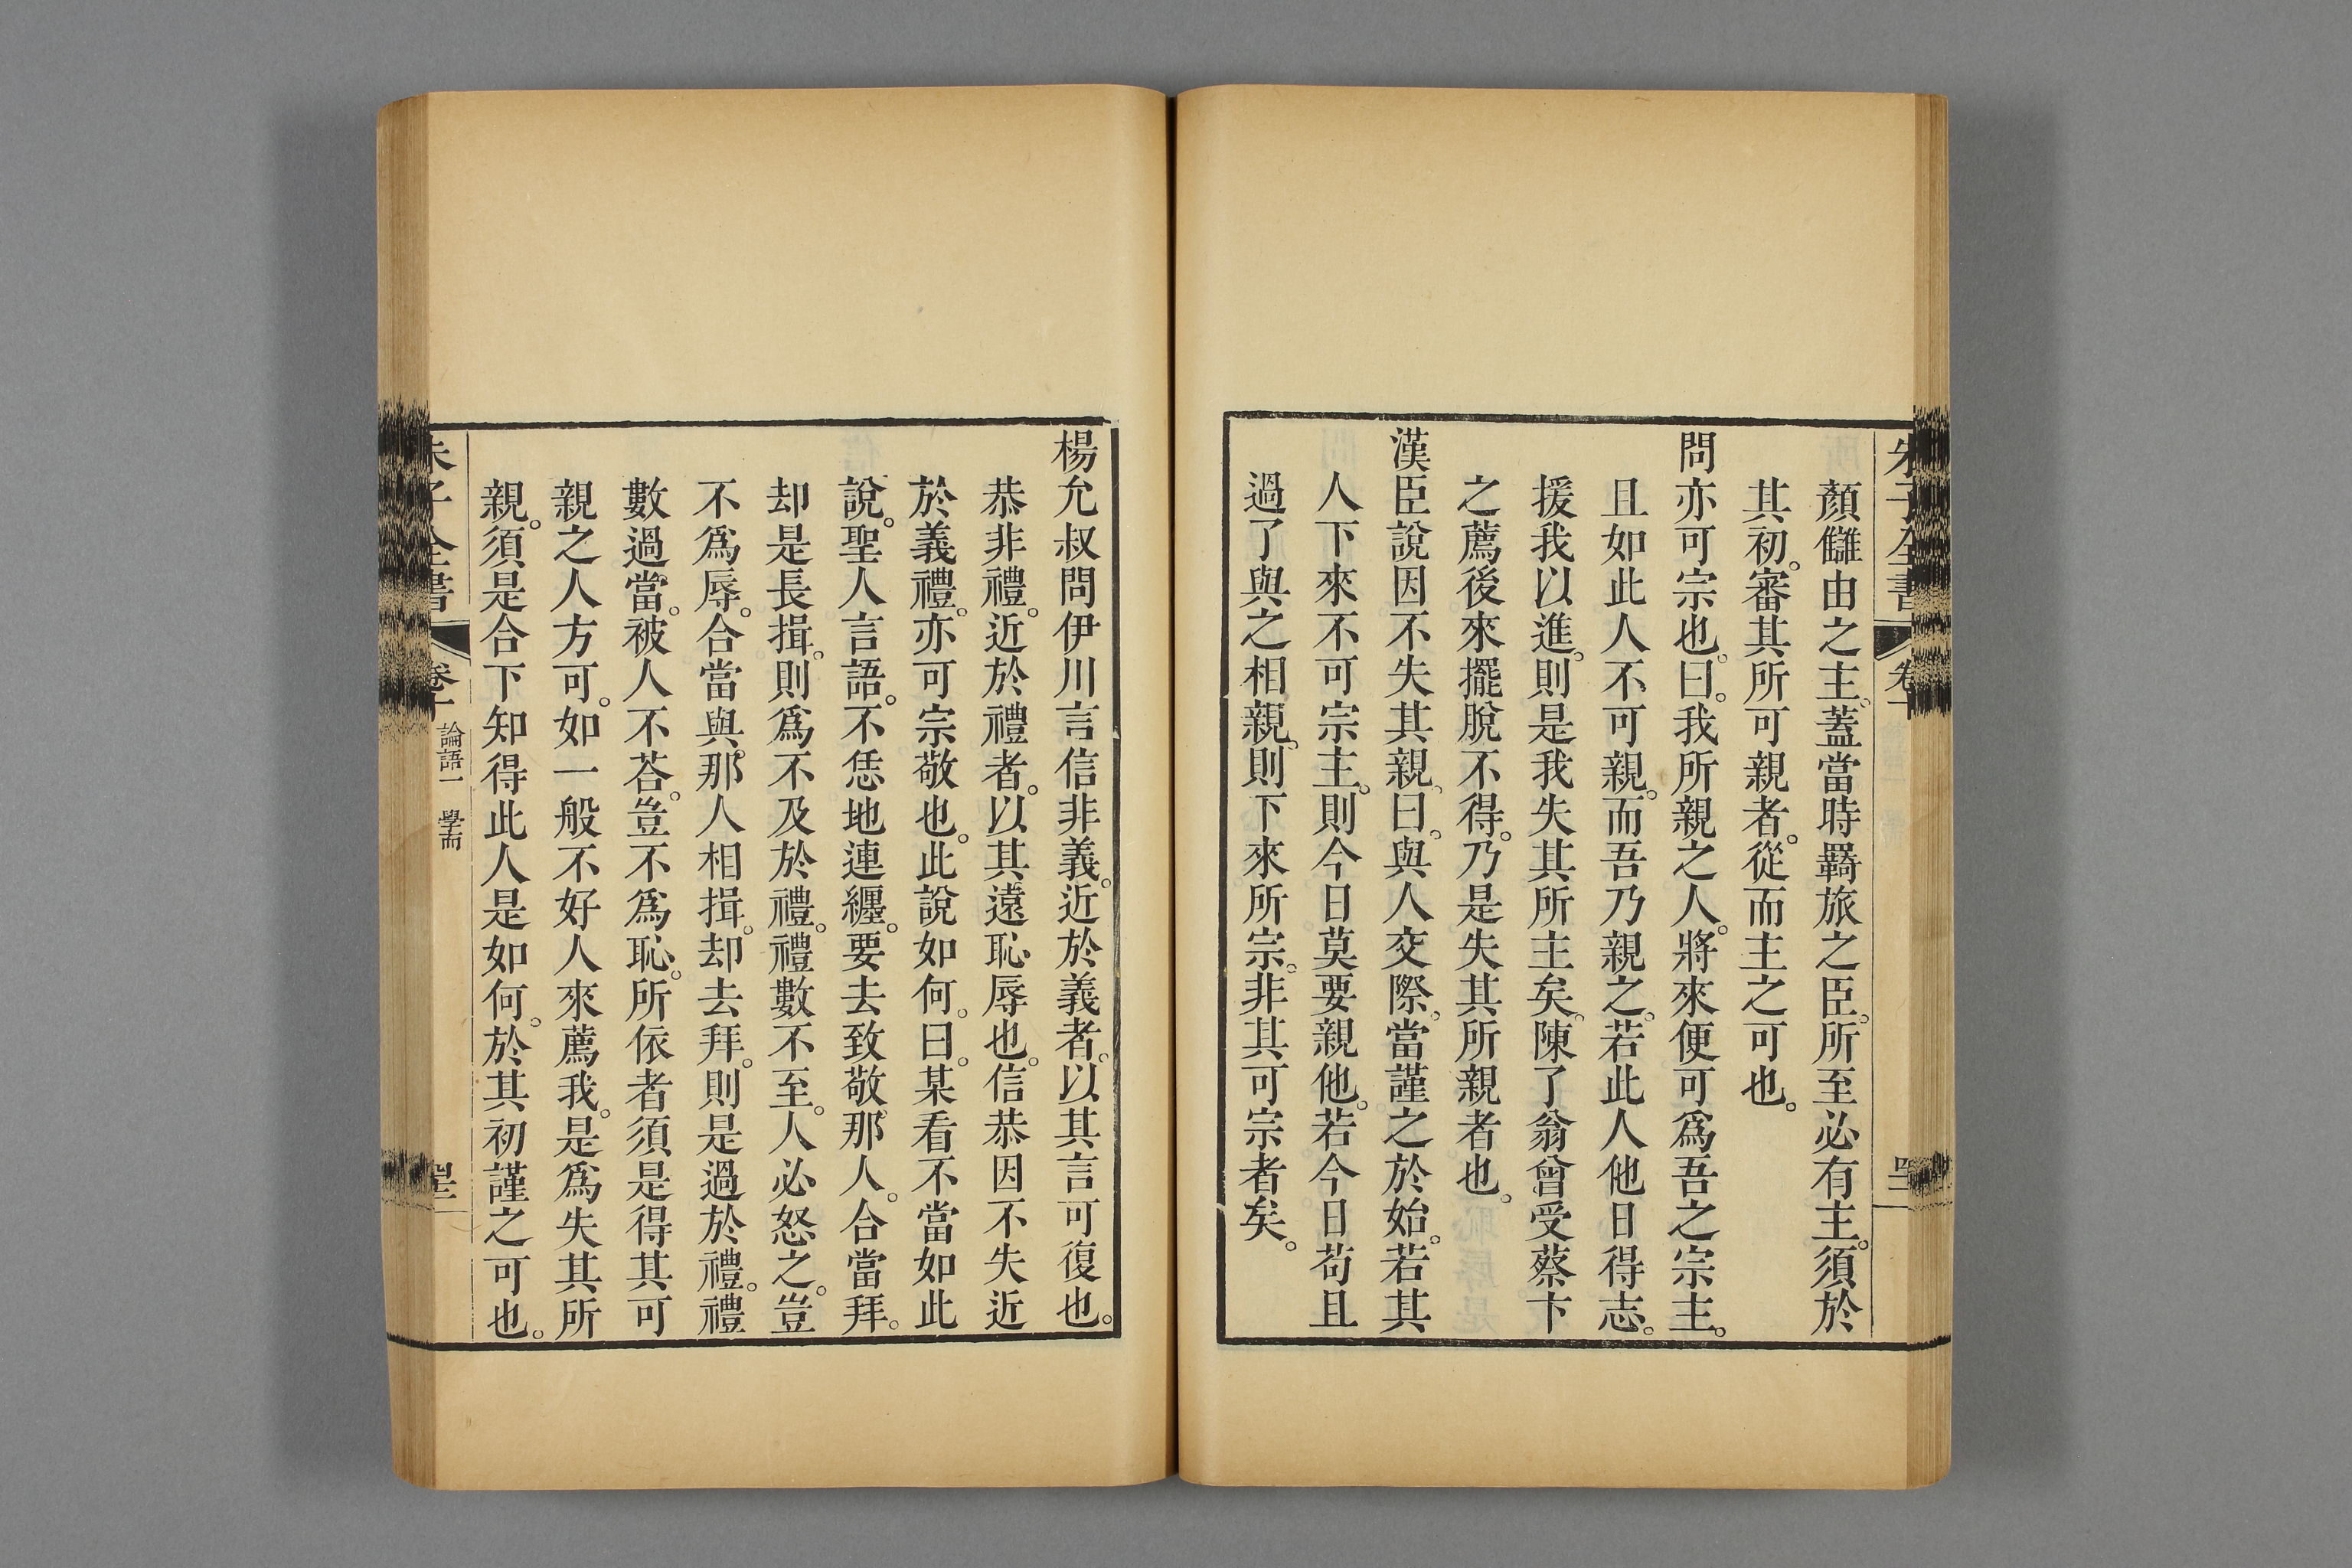 顏讎由之主。蓋當時羇旅之臣。所至必有主。須於
其初。審其所可親者。從而主之可也。
問亦可宗也。曰。我所親之人。將來便可爲吾之宗主。
且如此人不可親。而吾乃親之。若此人他日得志。
援我以進。則是我失其所主矣。陳了翁曾受蔡卞
之薦後來擺脫不得。乃是失其所親者也。
漢臣說因不失其親。曰。與人交際。當謹之於始。若其
人下來不可宗主。則今日莫要親他。若今日苟且
過了與之相親。則下來所宗。非其可宗者矣。
楊允叔問伊川言信非義。近於義者。以其言可復也。
恭非禮。近於禮者。以其遠恥辱也。信恭因不失近
於義禮。亦可宗敬也。此說如何。曰。某看不當如此
說。聖人言語。不恁地連纏。要去致敬那人。合當拜。
却是長揖。則爲不及於禮。禮數不至。人必怒之。豈
不爲辱。合當與那人相揖。却去拜。則是過於禮。禮
數過當。被人不荅。豈不爲恥。所依者須是得其可
親之人方可。如一般不好人來薦我。是爲失其所
親。須是合下知得此人是如何。於其初謹之可也。
朱子全書
論語一 學而